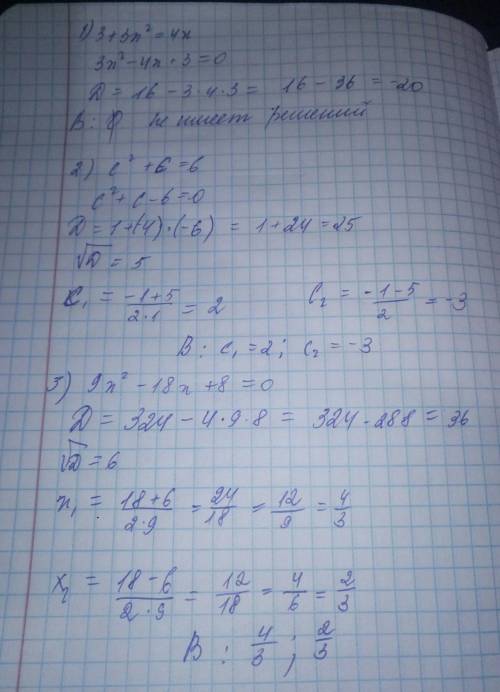 1) 3+3x²=4x
3x²-4x+3=0
D = 16 - 3·4·3 = 16 - 36 = -20
В: ∅ не имеет решений
2) c² + 6 = 6
c² + c - 6 = 0
D = 1+(-4)·(-6) = 1+24=25
√D = 5
c₁ = (-1+5)/(2·1) = 2 c₂ = (-1-5)/2 = -3
В: c₁ = 2; c₂ = -3
3) 9x² - 18x + 8 = 0
D = 324 - 4·9·8 = 324 - 288 = 36
√D = 6
x₁ = (18+6)/(2·9) = 24/18 = 12/9 = 4/3
x₂ = (18-6)/(2·9) = 12/18 = 4/6 = 2/3
В: 4/3; 2/3